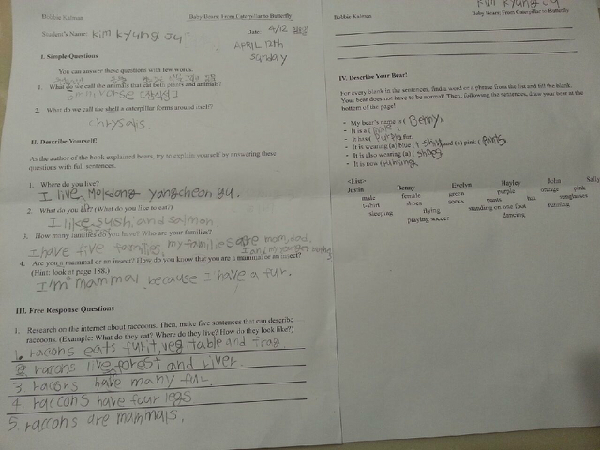 Bobbie Kalman
Baby Bears: From Caterpillar to Butterfly
Student's Name: Kim Kyung Ju
Date: 4/12
APRIL 12th
Sunday
I. Simple Questions
You can answer these questions with few words.
1. What do we call the animals that eat both plants and animals?
2. What do we call the shell a caterpillar forms around itself?
chrysalis
II. Describe Yourself!
As the author of the book explained bears, try to explain yourself by answering these
questions with full sentences.
1. Where do you live?
I live Mokdong yangcheon gu.
2. What do you eat? (What do you like to eat?)
I like sushi and salmon
3. How many families do you have? Who are your families?
I have five families, my families are mom, dad,
4. Are you a mammal or an insect? How do you know that you are a mammal or an insect?
(Hint: look at page 158.)
I'm mammal because I have a fur.
III. Free Response Question!
1. Research on the internet about raccoons. Then, make five sentences that can describe
raccoons. (Example: What do they eat? Where do they live? How do they look like?)
1. racions eats fruit, veg table and frog
2. racions live forest and river
3. racions have many fur
4. raccons have four legs
5. raccons are mammals.
Bobbie Kalman
Kim Kyung Ju
Baby Bears: From Caterpillar to Butterfly
IV. Describe Your Bear!
For every blank in the sentences, find a word or a phrase from the list and fill the blank.
Your bear does not have to be normal! Then, following the sentences, draw your bear at the
bottom of the page!
- My bear's name is ( Benny )
- It is a (
- It has (
- It is wearing (a) blue ( shirt ) and (a) pink ( pants
- It is also wearing (a) ( shoes
- It is now (
<List>
Justin Benny Evelyn Hayley John Sally
male female green purple orange pink
t-shirt shoes ocean pants hat sunglasses
sleeping flying standing on one foot running
playing soccer dancing